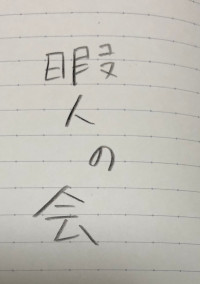 暇人の会